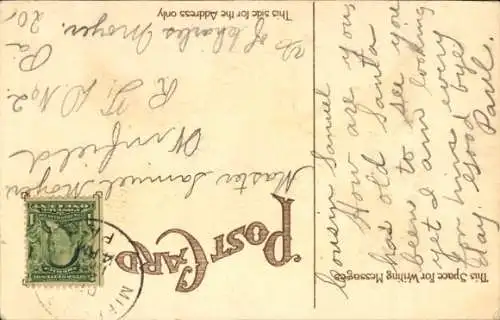 This Space for Writing Messages
This side for the Address only
POST CARD
Cousin Samuel
How are you
has old Santa
been to see you
yet I am looking
for him every
day Good bye
Paul.
Master Samuel Moyer
Winfield
R. F. D. No 2.
Pa
℅ of Charles Moyer.